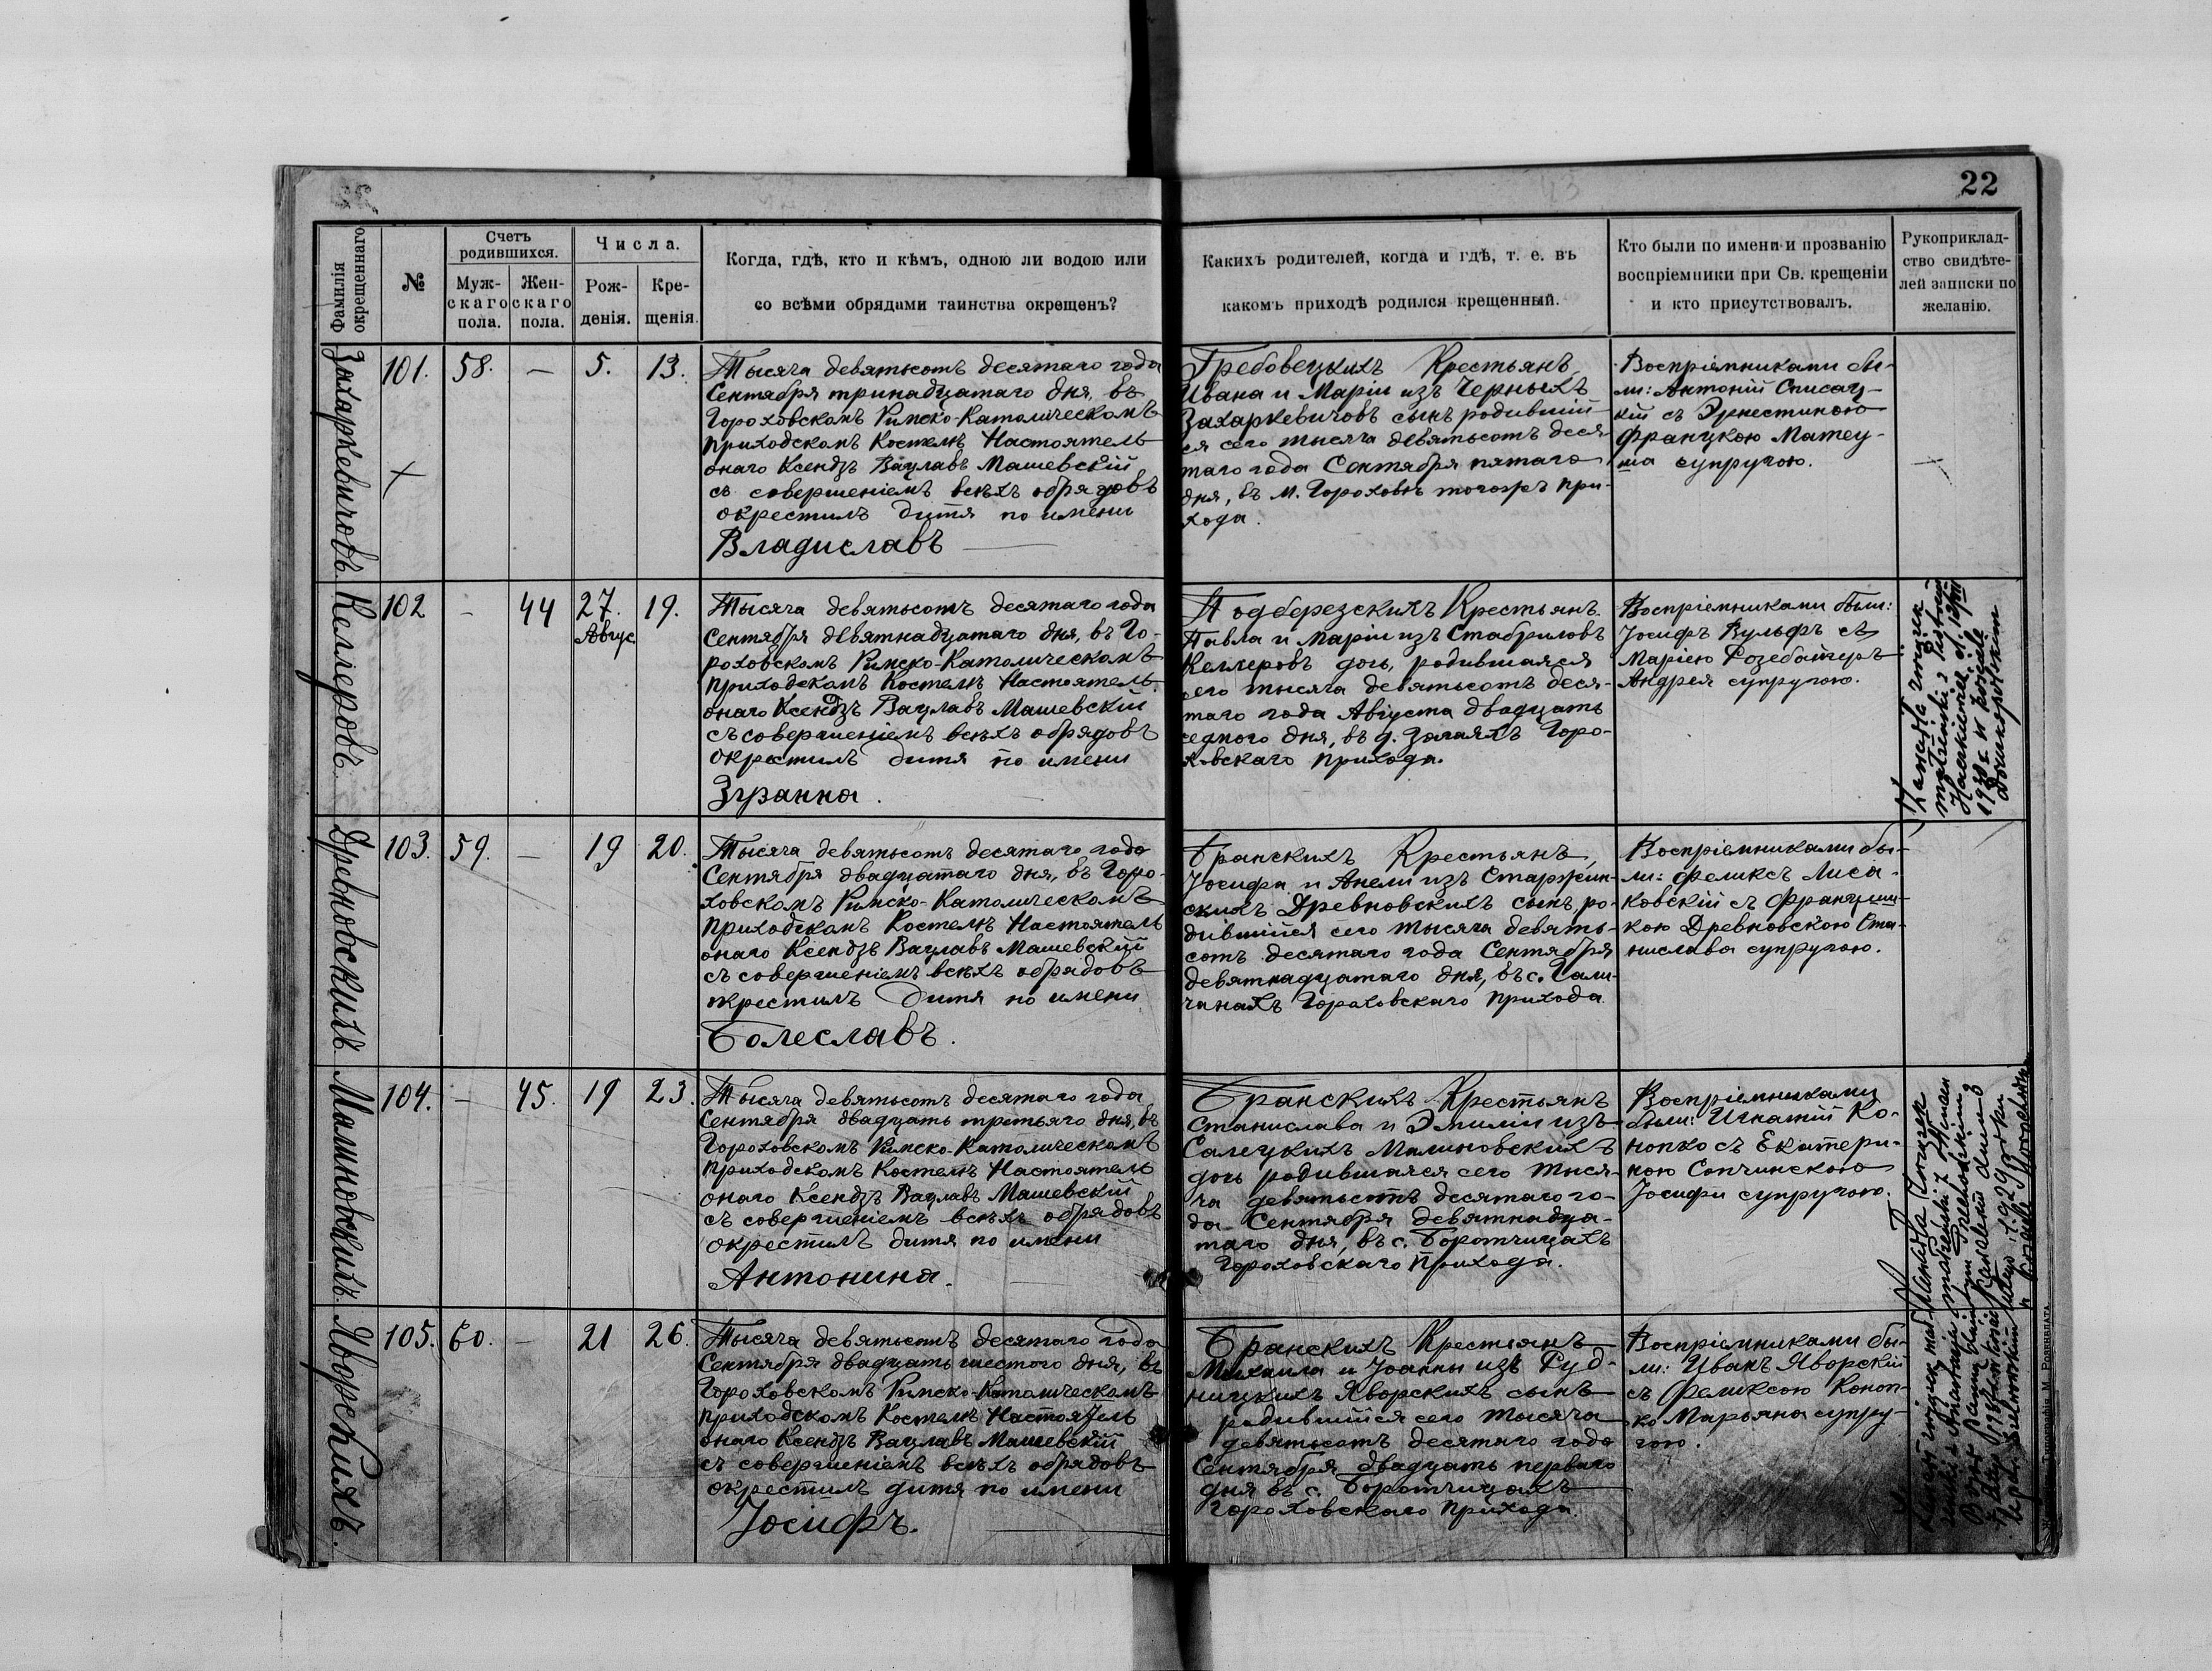 22
Фамилія
окрещеннаго
№
Счетъ
родившихся.
Муж-
скаго
пола.
Жен-
скаго
пола.
Числа.
Рож-
денія.
Кре-
щенія.
Когда, гдѣ, кто и кѣмъ, одною ли водою или
со всѣми обрядами таинства окрещенъ?
Какихъ родителей, когда и гдѣ, т. е. въ
какомъ приходѣ родился крещенный.
Кто были по имени и прозванію
воспріемники при Св. крещеніи
и кто присутствовалъ.
Рукоприклад-
ство свидѣте-
лей записки по
желанію.
Захаркевичовъ.
101. 58. — 5. 13.
Тысяча девятьсотъ десятаго года
Сентября тринадцатаго дня, въ
Гороховскомъ Римско-Католическомъ
приходскомъ Костелѣ Настоятель
онаго Ксендзъ Вацлавъ Машевскій
съ совершеніемъ всѣхъ обрядовъ
окрестилъ дитя по имени
Владиславъ
Гребовецкихъ Крестьянъ,
Ивана и Маріи изъ Черныхъ
Захаркевичовъ сынъ родившій-
ся сего тысяча девятьсотъ деся
таго года Сентября пятаго
дня, въ м. Гороховѣ тогожъ при-
хода.
Воспріемниками бы-
ли: Антоній Списац-
кій съ Эрнестиною
Францкою Матеу-
ша супругою.
Келлеровъ.
102 — 44 27. 19.
Авгус
Тысяча девятьсотъ десятаго года
Сентября девятнадцатаго дня, въ Го-
роховскомъ Римско-Католическомъ
приходскомъ Костелѣ Настоятель
онаго Ксендзъ Вацлавъ Машевскій
съ совершеніемъ всѣхъ обрядовъ
окрестилъ дитя по имени
Зузанна.
Подберезскихъ Крестьянъ.
Павла и Маріи изъ Стабриловъ
Келлеровъ дочь, родившаяся
сего тысяча девятьсотъ деся-
таго года Августа двадцать
седмого дня, въ д. Горо-
ховскаго прихода.
Воспріемниками были:
Іосифъ Вульфъ съ
Маріею
Андрея супругою.
Zawarła związek
małżeński z Piotrem
d. 12/VIII
1938 r. w kościele
Древновскихъ.
103. 59. — 19 20.
Тысяча девятьсотъ десятаго года
Сентября двадцатаго дня, въ Горо-
ховскомъ Римско-Католическомъ
приходскомъ Костелѣ Настоятель
онаго Ксендзъ Вацлавъ Машевскій
съ совершеніемъ всѣхъ обрядовъ
окрестилъ дитя по имени
Болеславъ.
Бранскихъ Крестьянъ,
Іосифа и Анели изъ Старжин-
скихъ Древновскихъ сынъ ро-
дившійся сего тысяча девять-
сотъ десятаго года Сентября
девятнадцатаго дня, въ с. Гали-
чанахъ Гороховскаго прихода.
Воспріемниками бы-
ли: Феликсъ Лиса-
ковскій съ Францишк-
кою Древновскою Ста-
нислава супругою.
Малиновскихъ.
104. — 45. 19 23.
Тысяча девятьсотъ десятаго года
Сентября двадцать третьяго дня, въ
Гороховскомъ Римско-Католическомъ
приходскомъ Костелѣ Настоятель
онаго Ксендзъ Вацлавъ Машевскій
съ совершеніемъ всѣхъ обрядовъ
окрестилъ дитя по имени
Антонина.
Бранскихъ Крестьянъ
Станислава и Эмиліи изъ
Салецкихъ Малиновскихъ
дочь родившаяся сего тыся-
ча девятьсотъ десятаго го-
да Сентября девятнадца-
таго дня, въ с. Боротчицахъ
Гороховскаго прихода.
Воспріемниками
были: Игнатій Ко-
нопко съ Екатери-
ною Сопчинскою
Іосифа супругою.
Яворскихъ.
105. 60. — 21 26.
Тысяча девятьсотъ десятаго года
Сентября двадцать шестого дня, въ
Гороховскомъ Римско-Католическомъ
приходскомъ Костелѣ Настоятель
онаго Ксендзъ Вацлавъ Машевскій
съ совершеніемъ всѣхъ обрядовъ
окрестилъ дитя по имени
Іосифъ.
Бранскихъ Крестьянъ
Михаила и Іоанны изъ Руд-
ницкихъ Яворскихъ сынъ
родившійся сего тысяча
девятьсотъ десятаго года
Сентября двадцать перваго
дня въ с. Боротчицахъ
Гороховскаго прихода.
Воспріемниками бы-
ли: Иванъ Яворскій
съ Феликсою Коноп-
ко Марьяна супру-
гою.
Типографія М. Розенблата.